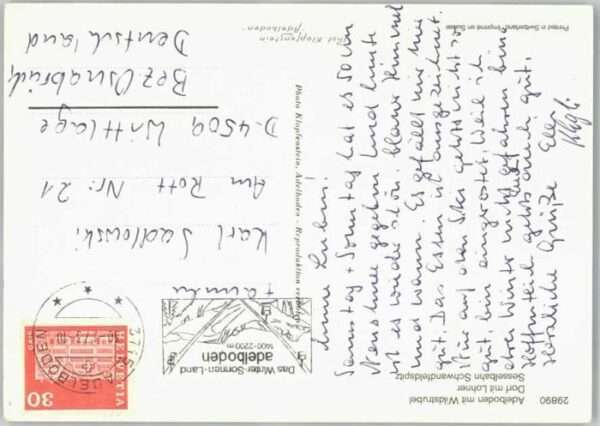 29890
Adelboden mit Wildstrubel
Dorf mit Lohner
Sesselbahn Schwandfeldspitz
Meine Lieben!
Samstag + Sonntag hat es 50 cm
Neuschnee gegeben und heute
ist es wieder schön, blauer Himmel
und warm. Es gefällt mir hier
gut. Das Essen ist ausgezeichnet.
Nur auf den Skier geht's nicht so
gut, bin eingerostet. Weil ich
etwas Winter nicht gefahren bin.
Hoffentlich geht's euch gut.
Herzliche Grüße
Photo Klopfenstein, Adelboden - Reproduktion
Photo Klopfenstein
Adelboden
Printed in Switzerland - Imprimé en Suisse
HELVETIA
30
3715 ADELBODEN
Das Winter-Sonnen-Land
adelboden
1400-2200 m
Familie
Karl Sadlowski
Am Rott Nr. 21
D-4509 Wittlage
Bez. Osnabrück
Deutschland